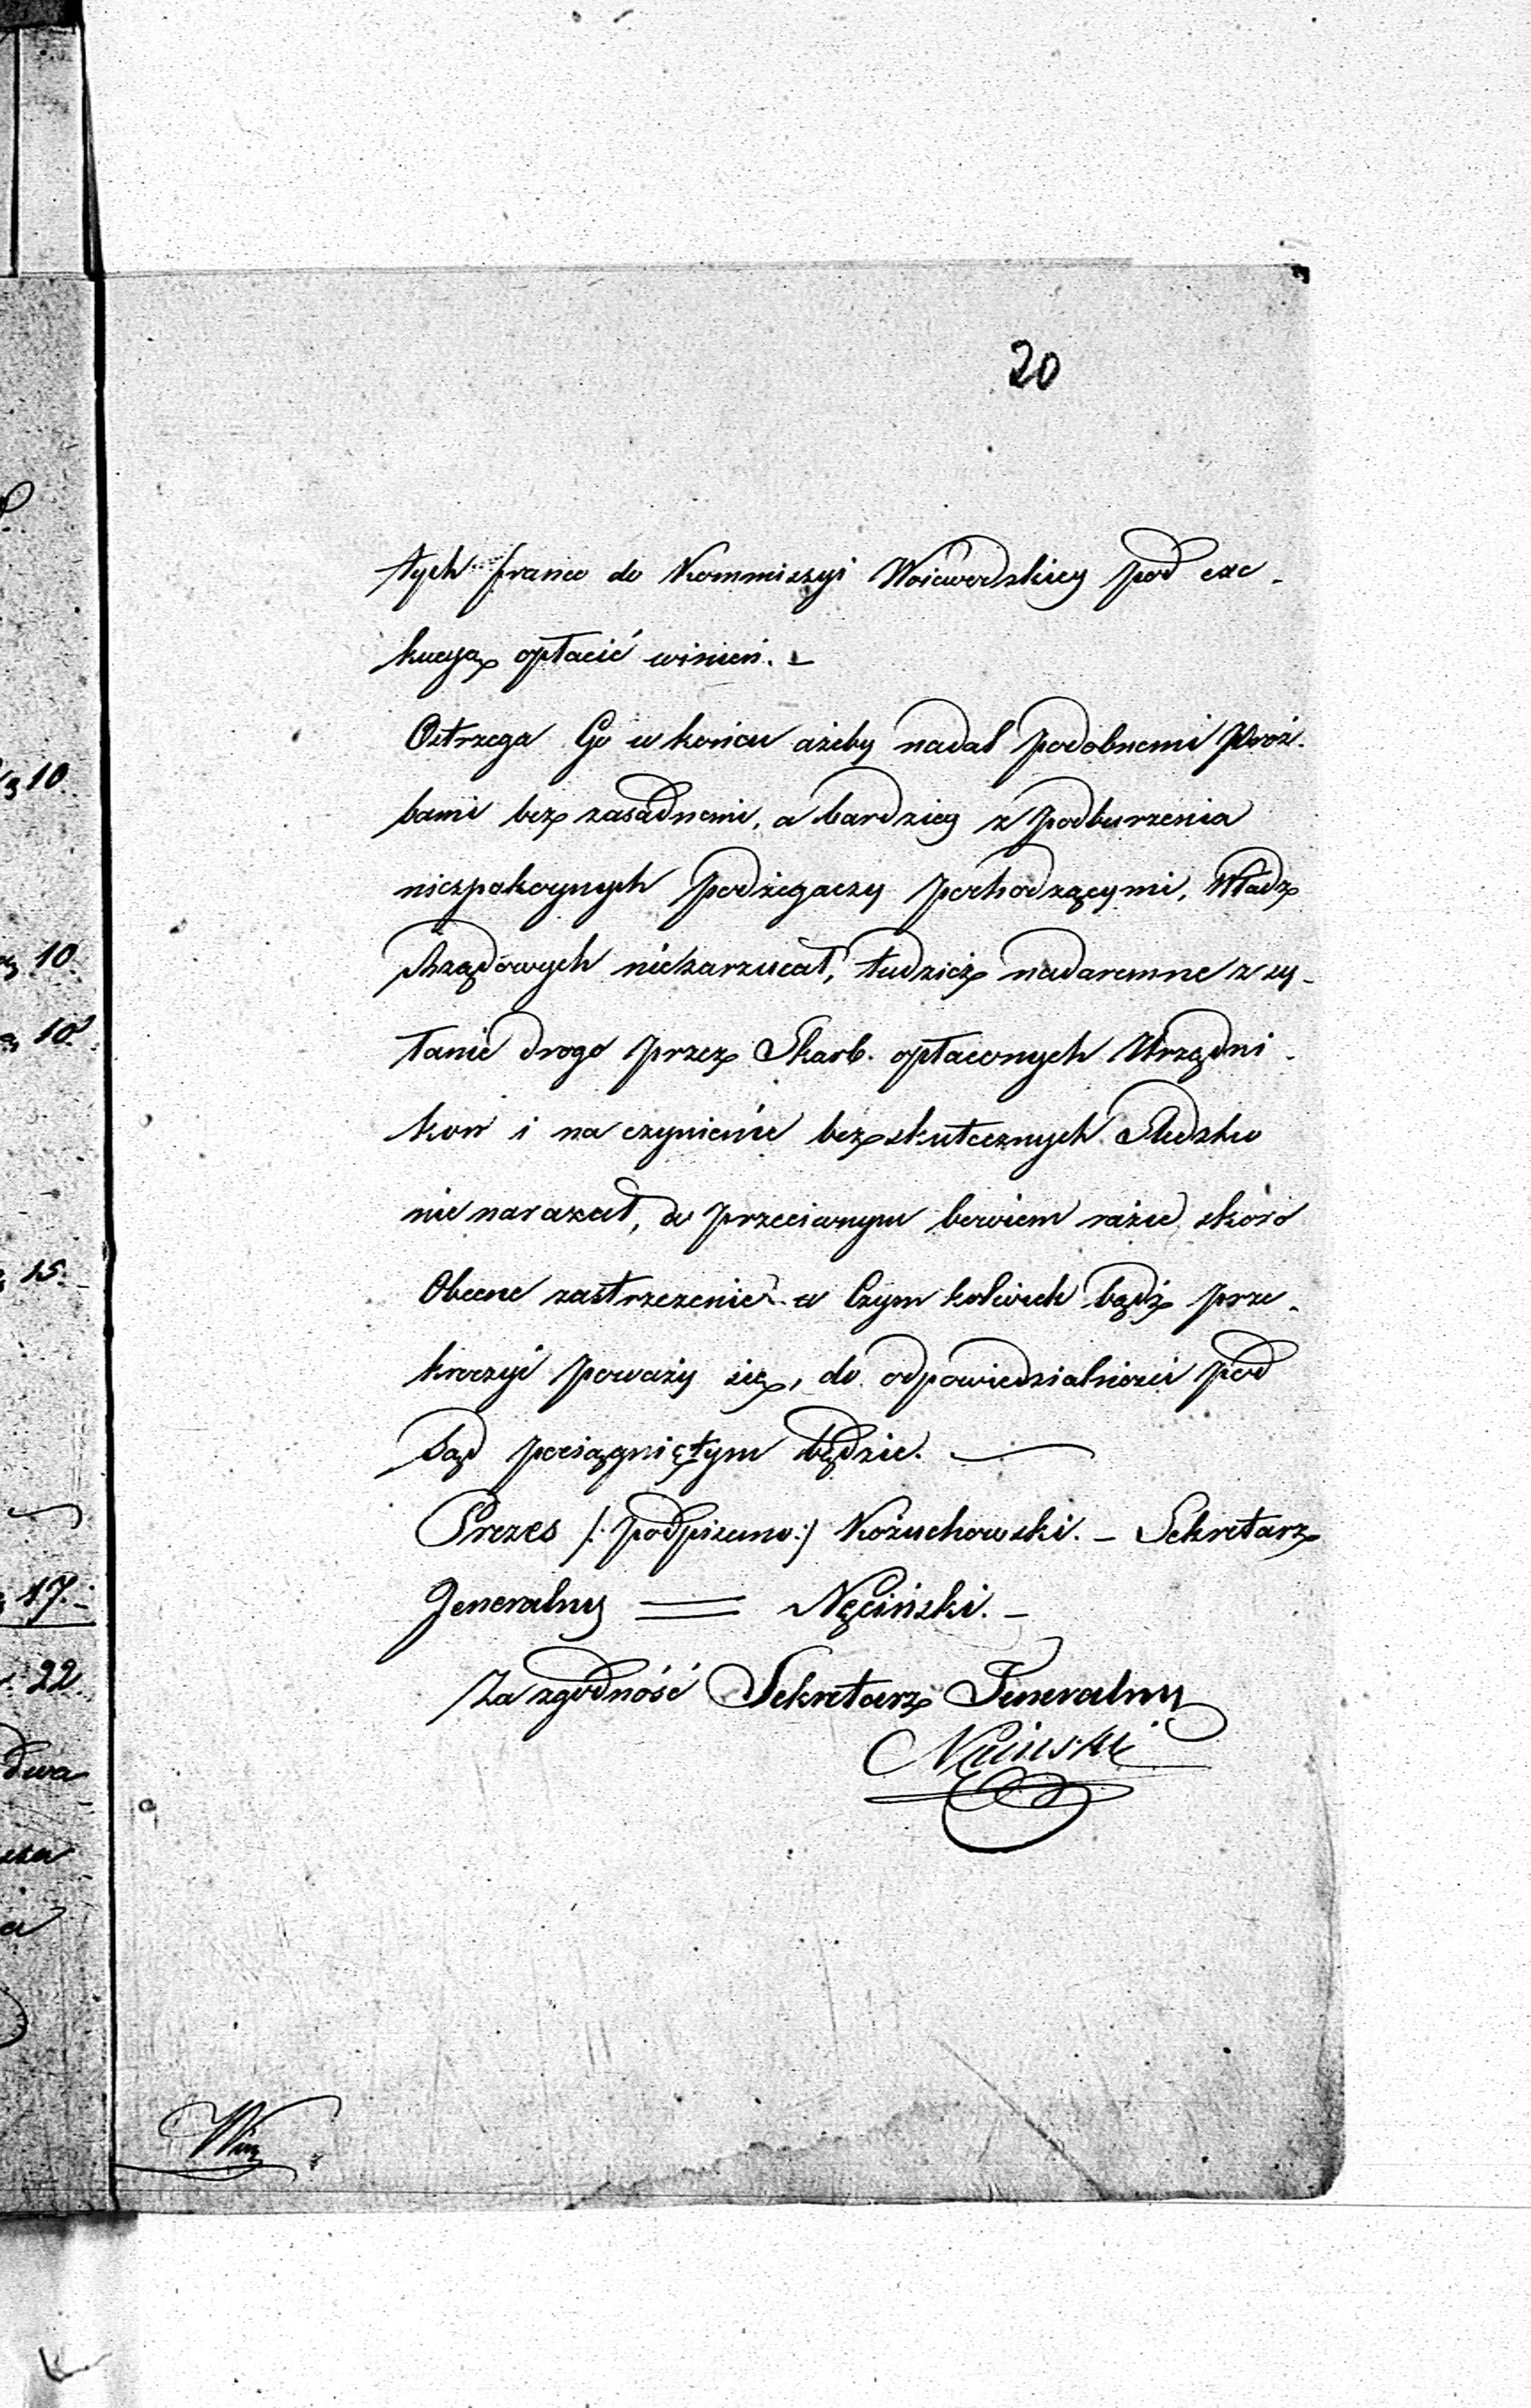 20
tych franco do Kommissyi Woiewodzkiey pod exe-
kucyą opłacić winien. –
Ostrzega Go w końcu ażeby nadal podobnemi proź-
bami bez zasadnemi, a bardziey z podburzenia
niespokoynych podżegaczy pochodzącymi, Władz
Rządowych niezarzucał, tudzież nadaremne zsy-
łanie drogo przez Skarb opłaconych Urzędni-
kow i na czynienie bezskutecznych Śledztw
nie narażał, w przeciwnym bowiem razie skoro
Obecne zastrzeżenie w Czym kolwiek bądź prze-
kroczyć poważy się, do odpowiedzialności pod
Sąd pociągniętym będzie. –
Prezes /: podpisano :/ Kożuchowski. – Sekretarz
Jeneralny = Nęciński. –
Za zgodność Sekretarz Jeneralny
Nęciński
10
10
10
15.
17.–
22
dwa